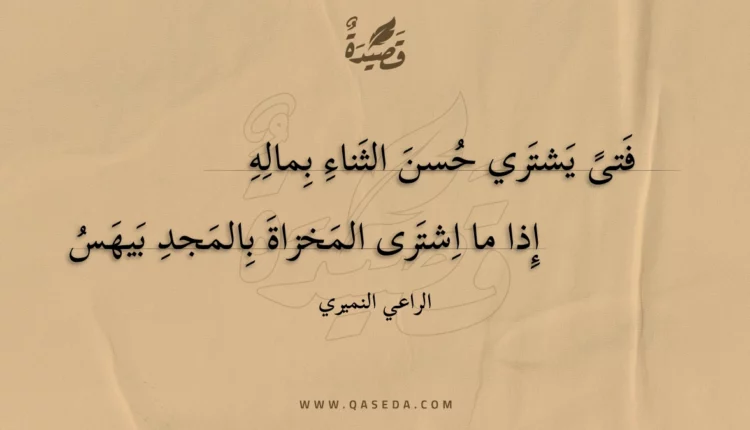 قَصِيدَةٌ
فَتىً يَشتَري حُسنَ الثَناءِ بِمالِهِ
إِذا ما اِشتَرى المَخزاةَ بِالمَجدِ بَيهَسُ
الراعي النميري
WWW.QASEDA.COM